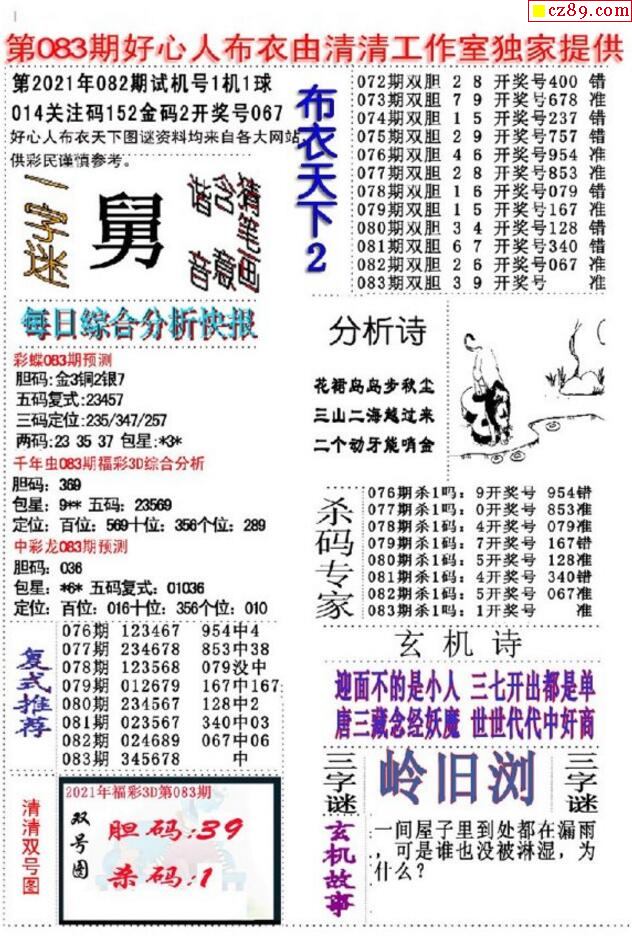 cz89.com
第083期好心人布衣由清清工作室独家提供
第2021年082期试机号1机1球
014关注码152金码2开奖号067
好心人布衣天下图谜资料均来自各大网站,
供彩民谨慎参考。
一字谜
舅
猜笔画
含意
谐音
布衣天下2
072期双胆 2 8 开奖号400 错
073期双胆 7 9 开奖号678 准
074期双胆 1 5 开奖号237 错
075期双胆 2 9 开奖号757 错
076期双胆 4 6 开奖号954 准
077期双胆 2 8 开奖号853 准
078期双胆 1 6 开奖号079 错
079期双胆 1 5 开奖号167 准
080期双胆 3 4 开奖号128 错
081期双胆 6 7 开奖号340 错
082期双胆 2 6 开奖号067 准
083期双胆 3 9 开奖号 准
每日综合分析快报
彩蝶083期预测
胆码:金3铜2银7
五码复式:23457
三码定位:235/347/257
两码:23 35 37 包星:*3*
千年虫083期福彩3D综合分析
胆码: 369
包星: 9** 五码: 23569
定位: 百位: 569十位: 356个位: 289
中彩龙083期预测
胆码: 036
包星: *6* 五码复式: 01036
定位: 百位: 016十位: 356个位: 010
分析诗
花裙岛岛步秋尘
三山二海越过来
二个动牙能哨金
杀码专家
076期杀1吗: 9开奖号 954错
077期杀1码: 0开奖号 853准
078期杀1码: 4开奖号 079准
079期杀1码: 7开奖号 167错
080期杀1码: 5开奖号 128准
081期杀1码: 4开奖号 340错
082期杀1码: 5开奖号 067准
083期杀1吗: 1开奖号 准
复式推荐
076期 123467 954中4
077期 234678 853中38
078期 123568 079没中
079期 012679 167中167
080期 234567 128中2
081期 023567 340中03
082期 024689 067中06
083期 345678 中
玄机诗
迎面不的是小人 三七开出都是单
唐三藏念经妖魔 世世代代中奸商
三字谜
岭旧浏
三字谜
清清双号图
2021年福彩3D第083期
双号图
胆码:39
杀码:1
玄机故事
一间屋子里到处都在漏雨
,可是谁也没被淋湿,为
什么?